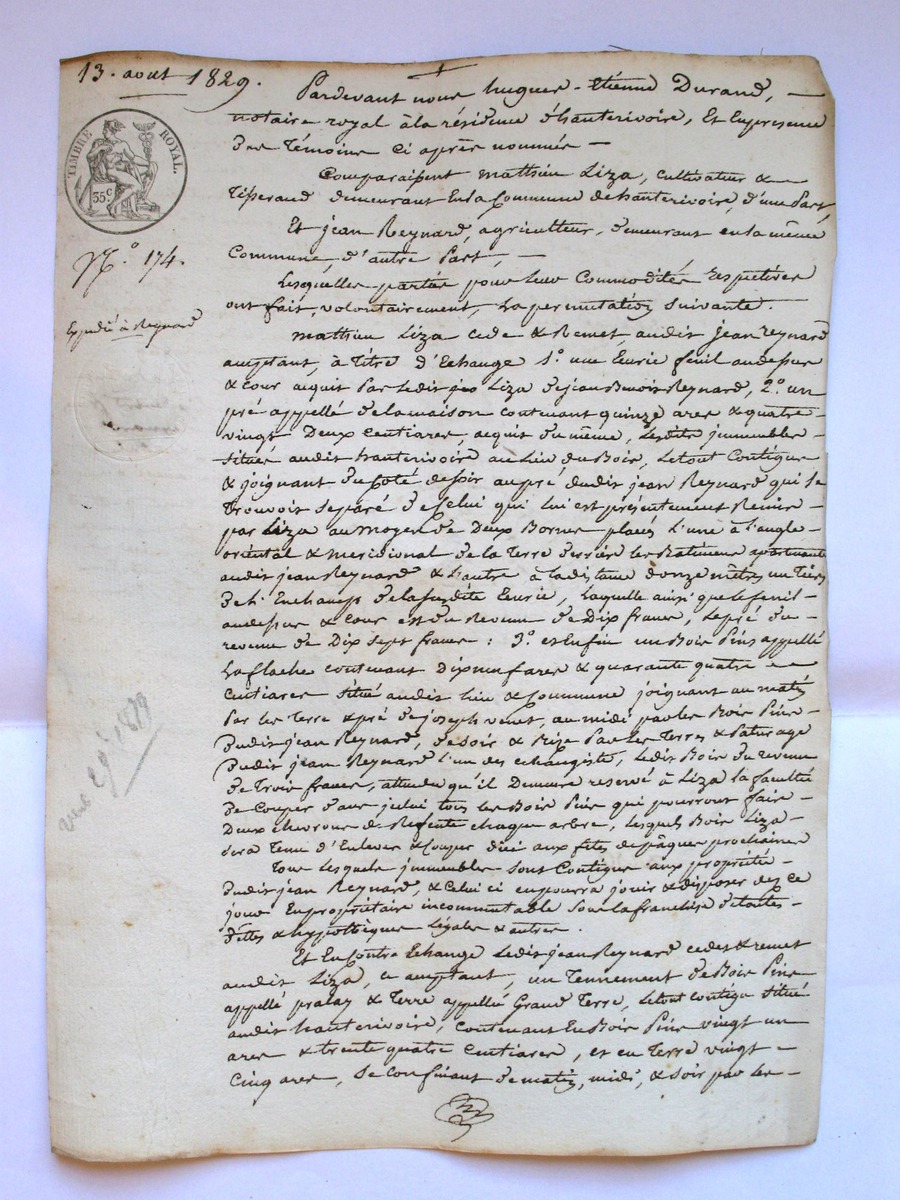 13. août 1829.
Pardevant nous hugues - étienne Durand,
notaire royal à la résidence d'hauterivoire, Et En presence
Des Témoins ci après nommés
Comparaissent mathieu Liza, cultivateur &
Tisserand demeurant En la Commune de hauterivoire, d'une Part,
Et jean Reynard, agriculteur, Demeurant en la même
Commune, d'autre Part,
TIMBRE ROYAL.
35 c
N.o 174.
Expédié à Reynard
Lesquelles parties pour leur Commodités Respectives
ont fait, volontairement, la permutation suivante.
mathieu Liza cede & Remet, audit jean reynard
acceptant, à Titre d'Echange 1.o une Ecurie fenil au dessus
& Cour acquis Par Ledit Liza de jean Benoit Reynard, 2.o un
pré appellé de la maison contenant quinze ares & quatre
vingt Deux Centiares, acquit du même, Lesdits immeubles
situés audit hauterivoire au Lieu du Bois, Le tout Contigus
& joignant du Coté de soir au pré dudit jean Reynard qui se
Trouvoit separé de celui qui lui est présentement Remis
par Liza au moyen de Deux Bornes placés L'une à l'angle
oriental & meridional de la Terre derrière les Batimens
audit jean Reynard & L'autre à la distance d'onze mètres un tiers
de la susdite Ecurie, Laquelle ainsi que le fenil
au dessus & Cour est du Revenu de Dix francs, Le pré du
revenu de Dix sept francs : 3.o et Enfin un Bois Pins appellé
La flache contenant Dix neuf ares & quarante quatre
Centiares situé audit Lieu & Commune joignant au matin
Par les Terre & pré de joseph venet, au midi par les Bois Pins
Dudit jean Reynard, de soir & Bize Par les Terres & Paturage
Dudit jean Reynard L'un des echangiste, Ledit Bois du revenu
de Trois francs, attendu qu'il Demeure reservé à Liza la faculté
De Couper dans icelui tous les Bois Pins qui pourront faire
Deux chevrons de Refente chaque arbre, Lesquels Bois Liza
sera Tenu d'Enlever & Couper d'ici aux fêtes de pâques prochaines
Tous Lesquels immeubles sont Contigus aux propriétés
Dudit jean Reynard, & Celui ci en pourra jouir & disposer dès ce
jour En propriétaire incommutable sous la franchise de toutes
dettes & hyppothèques Légales & autres.
Et En Contre Echange Ledit jean Reynard cede & remet
audit Liza, ce acceptant, un Tennement de Bois Pins
appellé pralay & Terre appellé Grand Terre, Le tout contigu situé
audit hauterivoire, Contenant En Bois Pins vingt un
ares & trente quatre Centiares, et en Terre vingt
Cinq ares, se Confinant de matin, midi, & soir par les